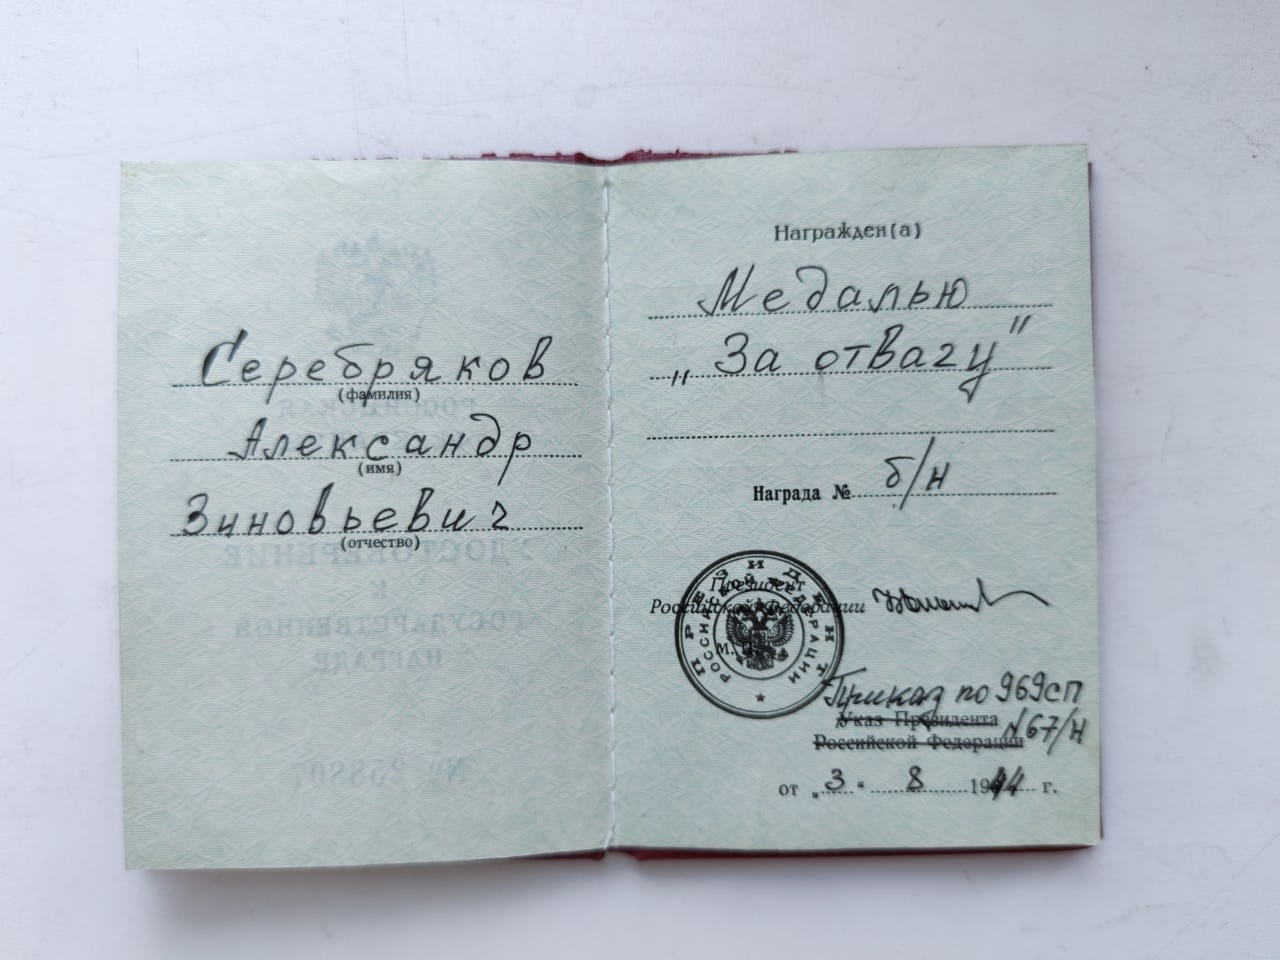 Серебряков
(фамилия)
Александр
(имя)
Зиновьевич
(отчество)
Награжден(а)
Медалью
„За отвагу"
Награда № б/н
Президент
Российской Федерации
М. П.
ПРЕЗИДЕНТ
РОССИЙСКОЙ ФЕДЕРАЦИИ
Приказ по 969сп
Указ Президента №67/н
Российской Федерации
от „3" 8 1944 г.